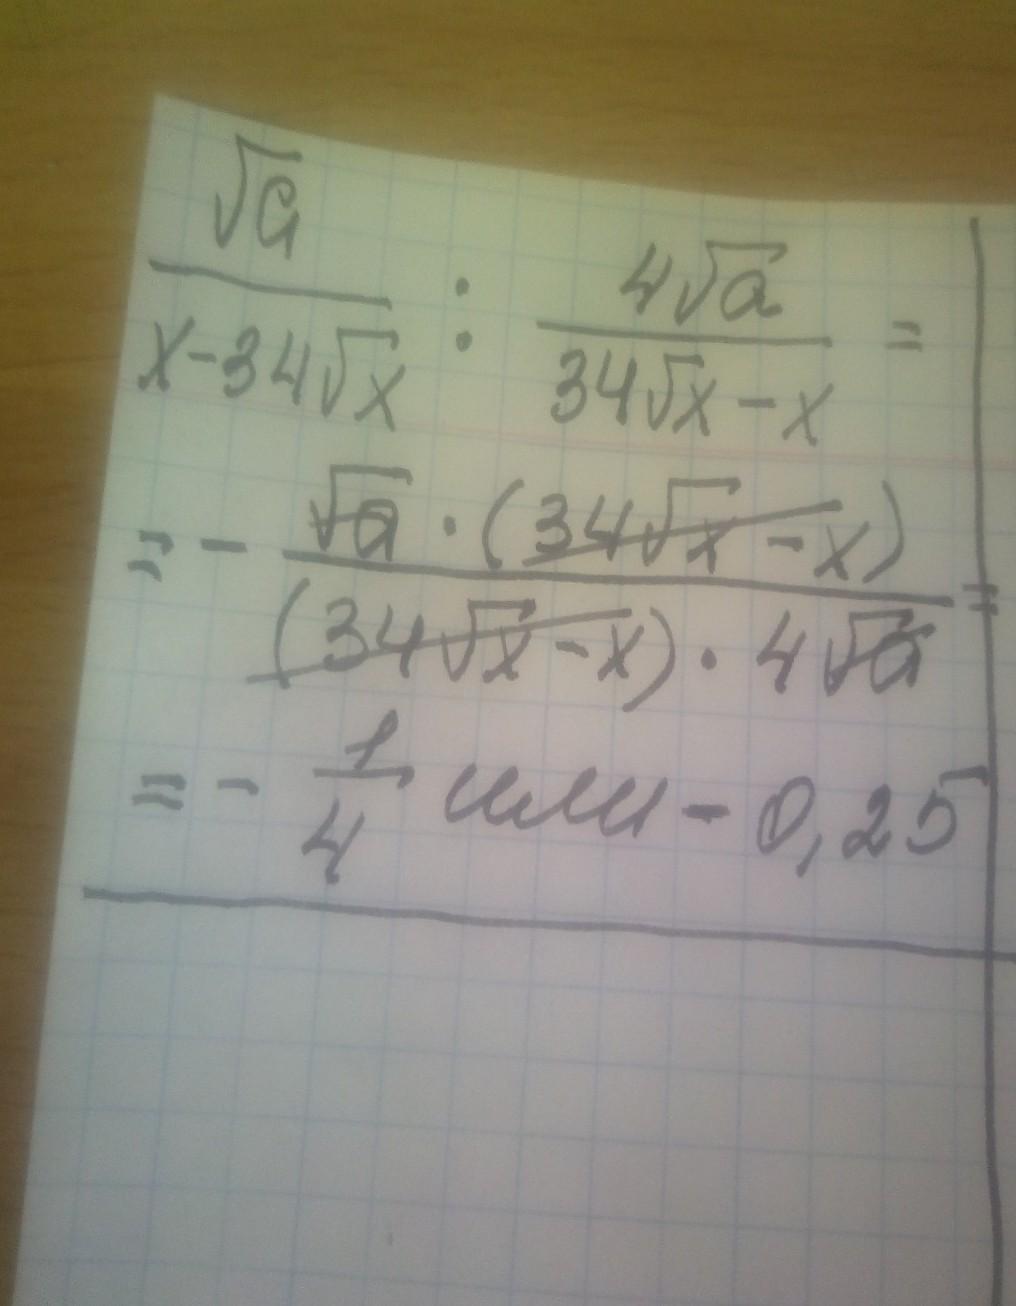 √a/(x-34√x) : 4√a/(34√x-x) =
= - √a·(34√x-x)/((34√x-x)·4√a) =
= - 1/4 или - 0,25